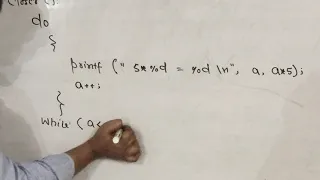 do
{
printf (" 5*%d = %d \n", a, a*5);
a++;
}
while (a<